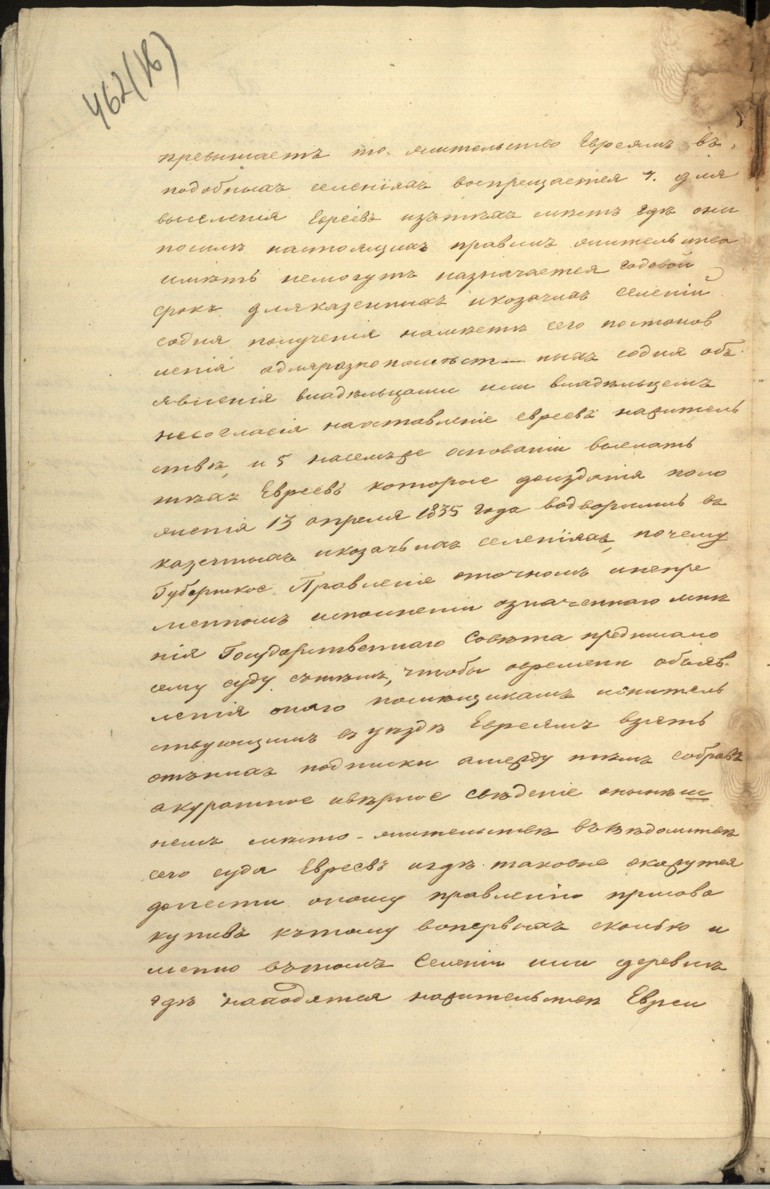 462(16)
превышаетъ то. жительство Евреямъ въ
подобныхъ селенїяхъ воспрещается 4. для
выселенїя Евреевъ изътѣхъ мѣстъ гдѣ они
посилѣ настоящихъ правилъ жительства
имѣть немогутъ назначается годовой
срокъ дляказенныхъ икозачихъ селенїй
содня полученїя намѣстѣ сего постонов
ленїя адляразнопомѣст— ныхъ содня объ
явленїя владѣльцами или владѣльцемъ
несогласїя наоставленїе евреевъ нажитель
ствѣ, и 5 насемъже основанїи выслать
тѣхъ Евреевъ которые доизданїя поло
женїя 13 апреля 1835 года водворились въ
казенныхъ икозачьихъ селенїяхъ, почему
Губернское Правленїе оточномъ инепре
менномъ исполненїи означеннаго мнѣ
нїя Государственнаго Совѣта предписало
сему суду сътѣмъ, чтобы овремени объяв-
ленїя онаго помѣщикамъ ижитель
ствующимъ въ уѣздѣ Евреямъ взять
отънихъ подписки амежду тѣмъ собравъ
акуратное ивѣрное свѣденїе онынѣш
немъ мѣсто-жительствѣ въвѣдомствѣ
сего суда Евреевъ игдѣ таковые окажутся
донести оному правленїю присово
купивъ кътому вопервыхъ сколько и
менно вътомъ Селенїи или деревнѣ
гдѣ находятся нажительствѣ Евреи